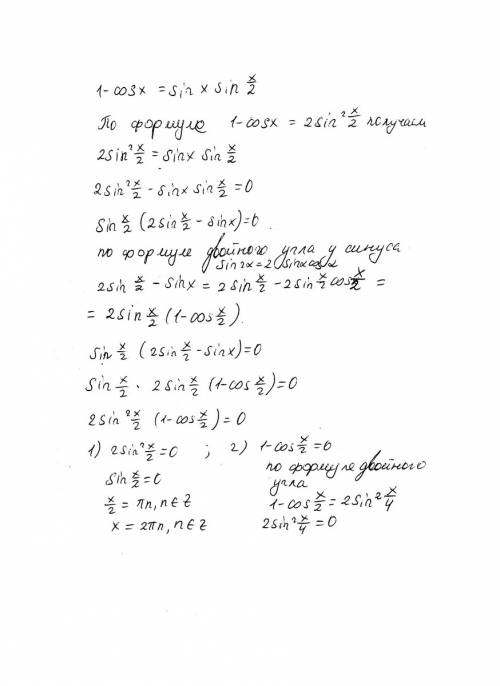 1-cosx = sin x sin x/2
По формуле 1-cosx = 2sin² x/2 получаем
2sin² x/2 = sinx sin x/2
2sin² x/2 - sinx sin x/2 = 0
sin x/2 (2sin x/2 - sinx)=0.
по формуле двойного угла у синуса
sin2x=2 sinx cosx
2sin x/2 - sinx = 2sin x/2 - 2sin x/2 cos x/2 =
= 2sin x/2 (1-cos x/2).
sin x/2 (2sin x/2 - sinx)=0
sin x/2 · 2sin x/2 (1-cos x/2)=0
2sin² x/2 (1-cos x/2)=0
1) 2sin² x/2 =0 ; 2) 1-cos x/2 =0
sin x/2 =0 по формуле двойного
угла
x/2 = πn, n∈Z 1-cos x/2 = 2sin² x/4
x = 2πn, n∈Z 2sin² x/4 =0